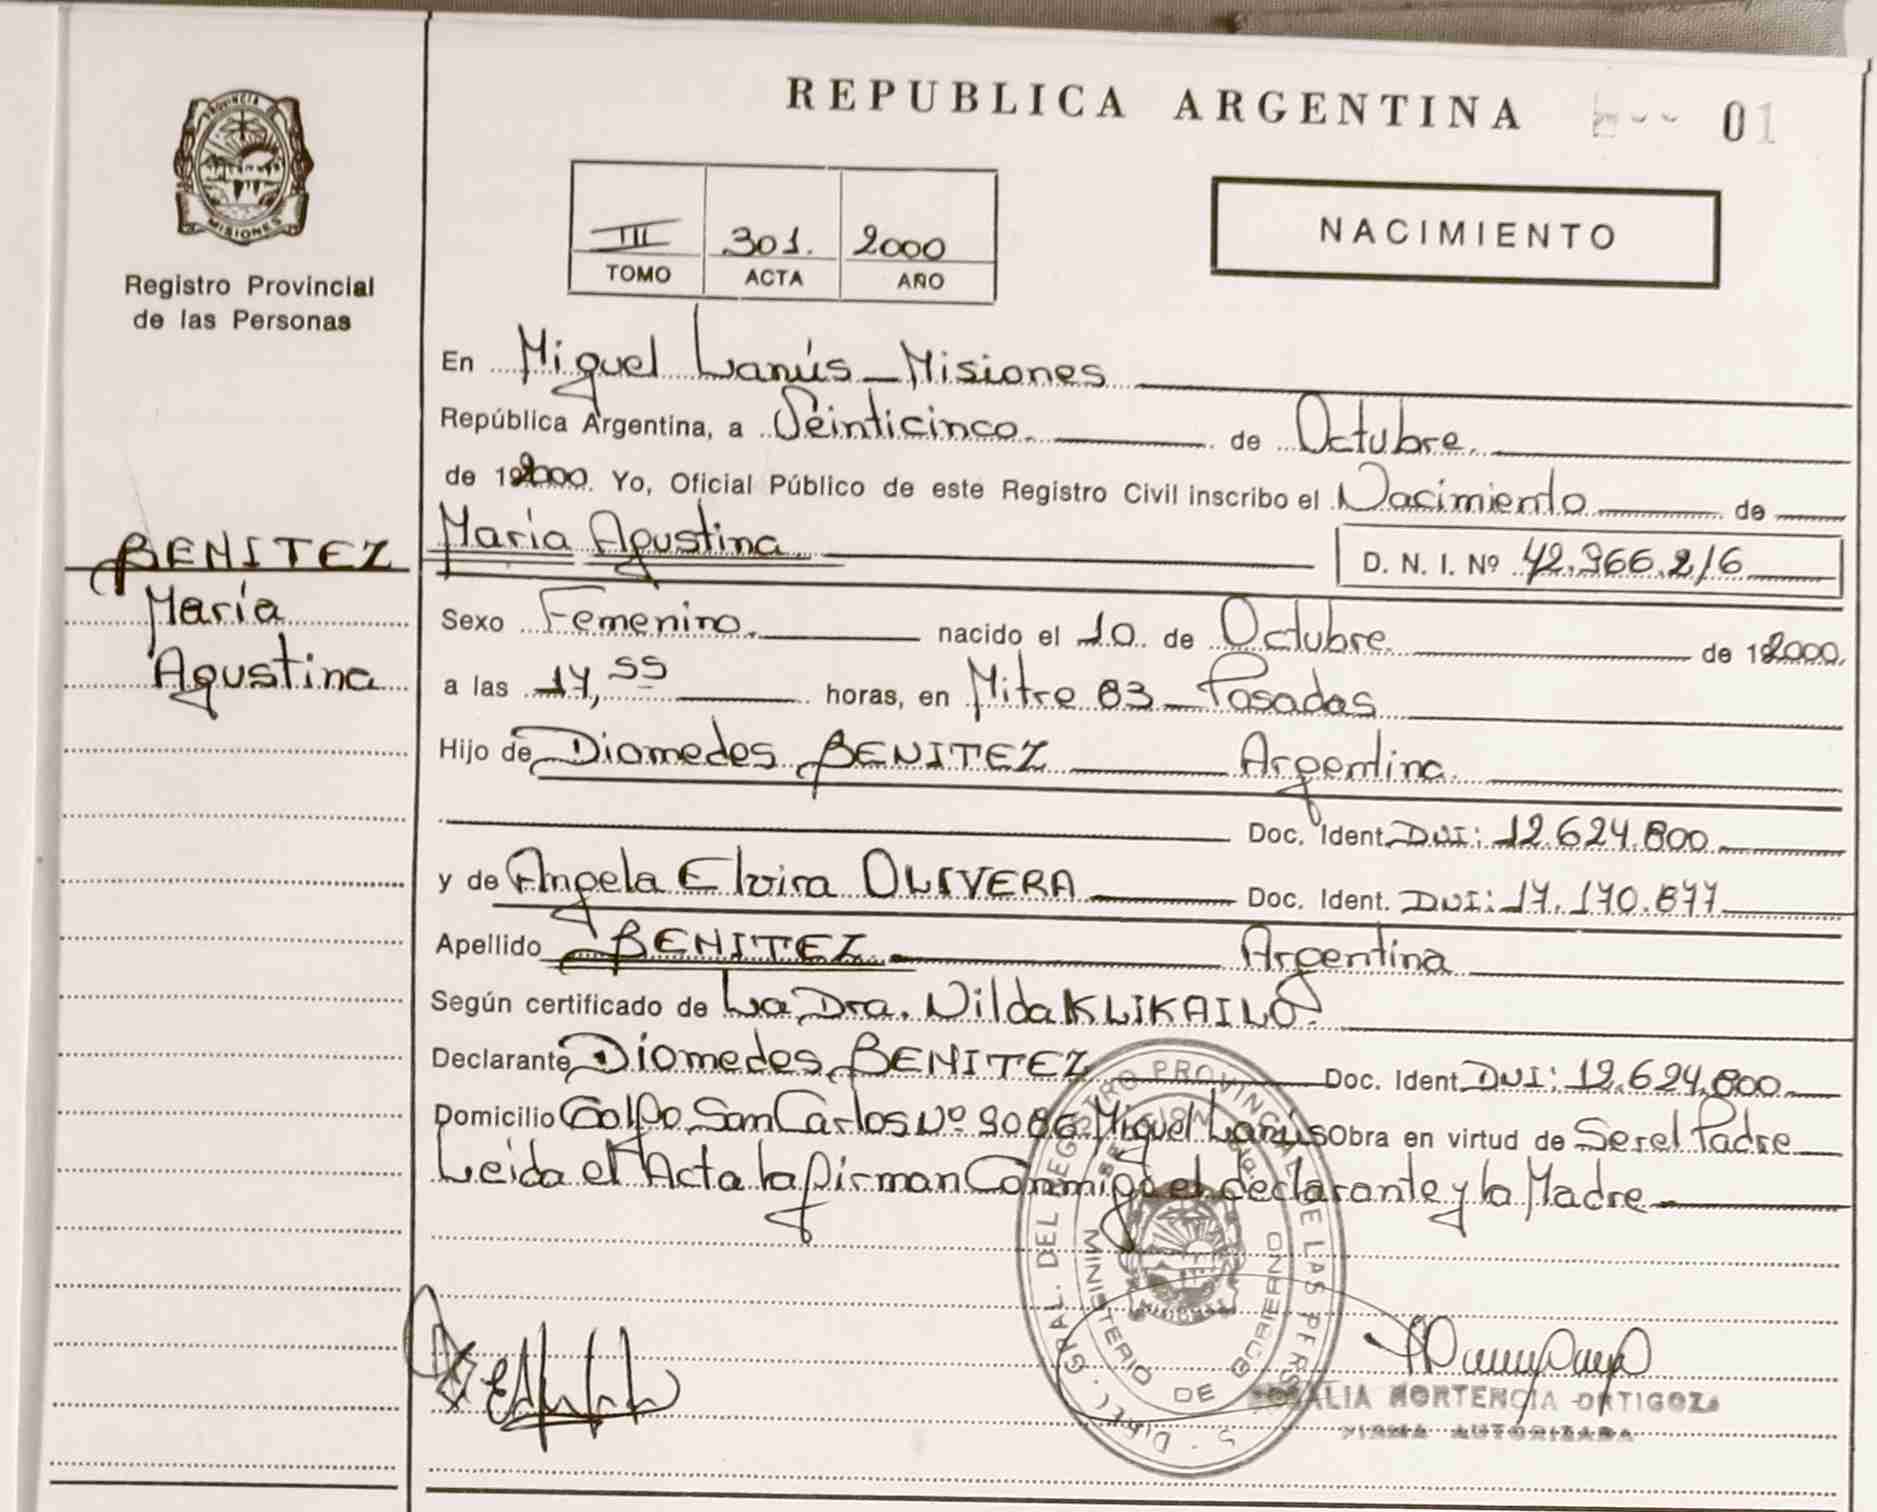 REPUBLICA ARGENTINA
01
PROVINCIA DE
MISIONES
Registro Provincial
de las Personas
III 301. 2000
TOMO ACTA AÑO
NACIMIENTO
En Miguel Lanús - Misiones
República Argentina, a Veinticinco. de Octubre.
de 192000. Yo, Oficial Público de este Registro Civil inscribo el Nacimiento de
BENITEZ
María
Agustina
María Agustina. D. N. I. Nº 42.966.216
Sexo Femenino. nacido el 10. de Octubre. de 192000.
a las 17,55 horas, en Mitre 83 - Posadas
Hijo de Diomedes BENITEZ Argentina.
Doc. Ident. DNI: 12.624.800
y de Angela Elvira OLIVERA Doc. Ident. DNI: 17.170.877
Apellido BENITEZ Argentina
Según certificado de La Dra. Nilda KLIKAILO.
Declarante Diomedes BENITEZ Doc. Ident. DNI: 12.624.800
Domicilio Golfo San Carlos Nº 9086 Miguel Lanús Obra en virtud de Ser el Padre
Leida el Acta la firman Conmigo el declarante y la Madre
DEL REGISTRO PROVINCIAL DE LAS PERS
MINISTERIO DE GOBIERNO
MISIONES
HORTENCIA ORTIGOZA
FIRMA AUTORIZADA